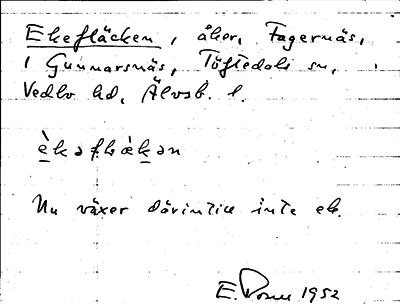 Ekefläcken, åker, Fagernäs,
i Gunnarsnäs, Töftedals sn,
Vedbo hd, Älvsb. l.
è̱kəflàḵən
Nu växer därintill inte ek.
E. 1952